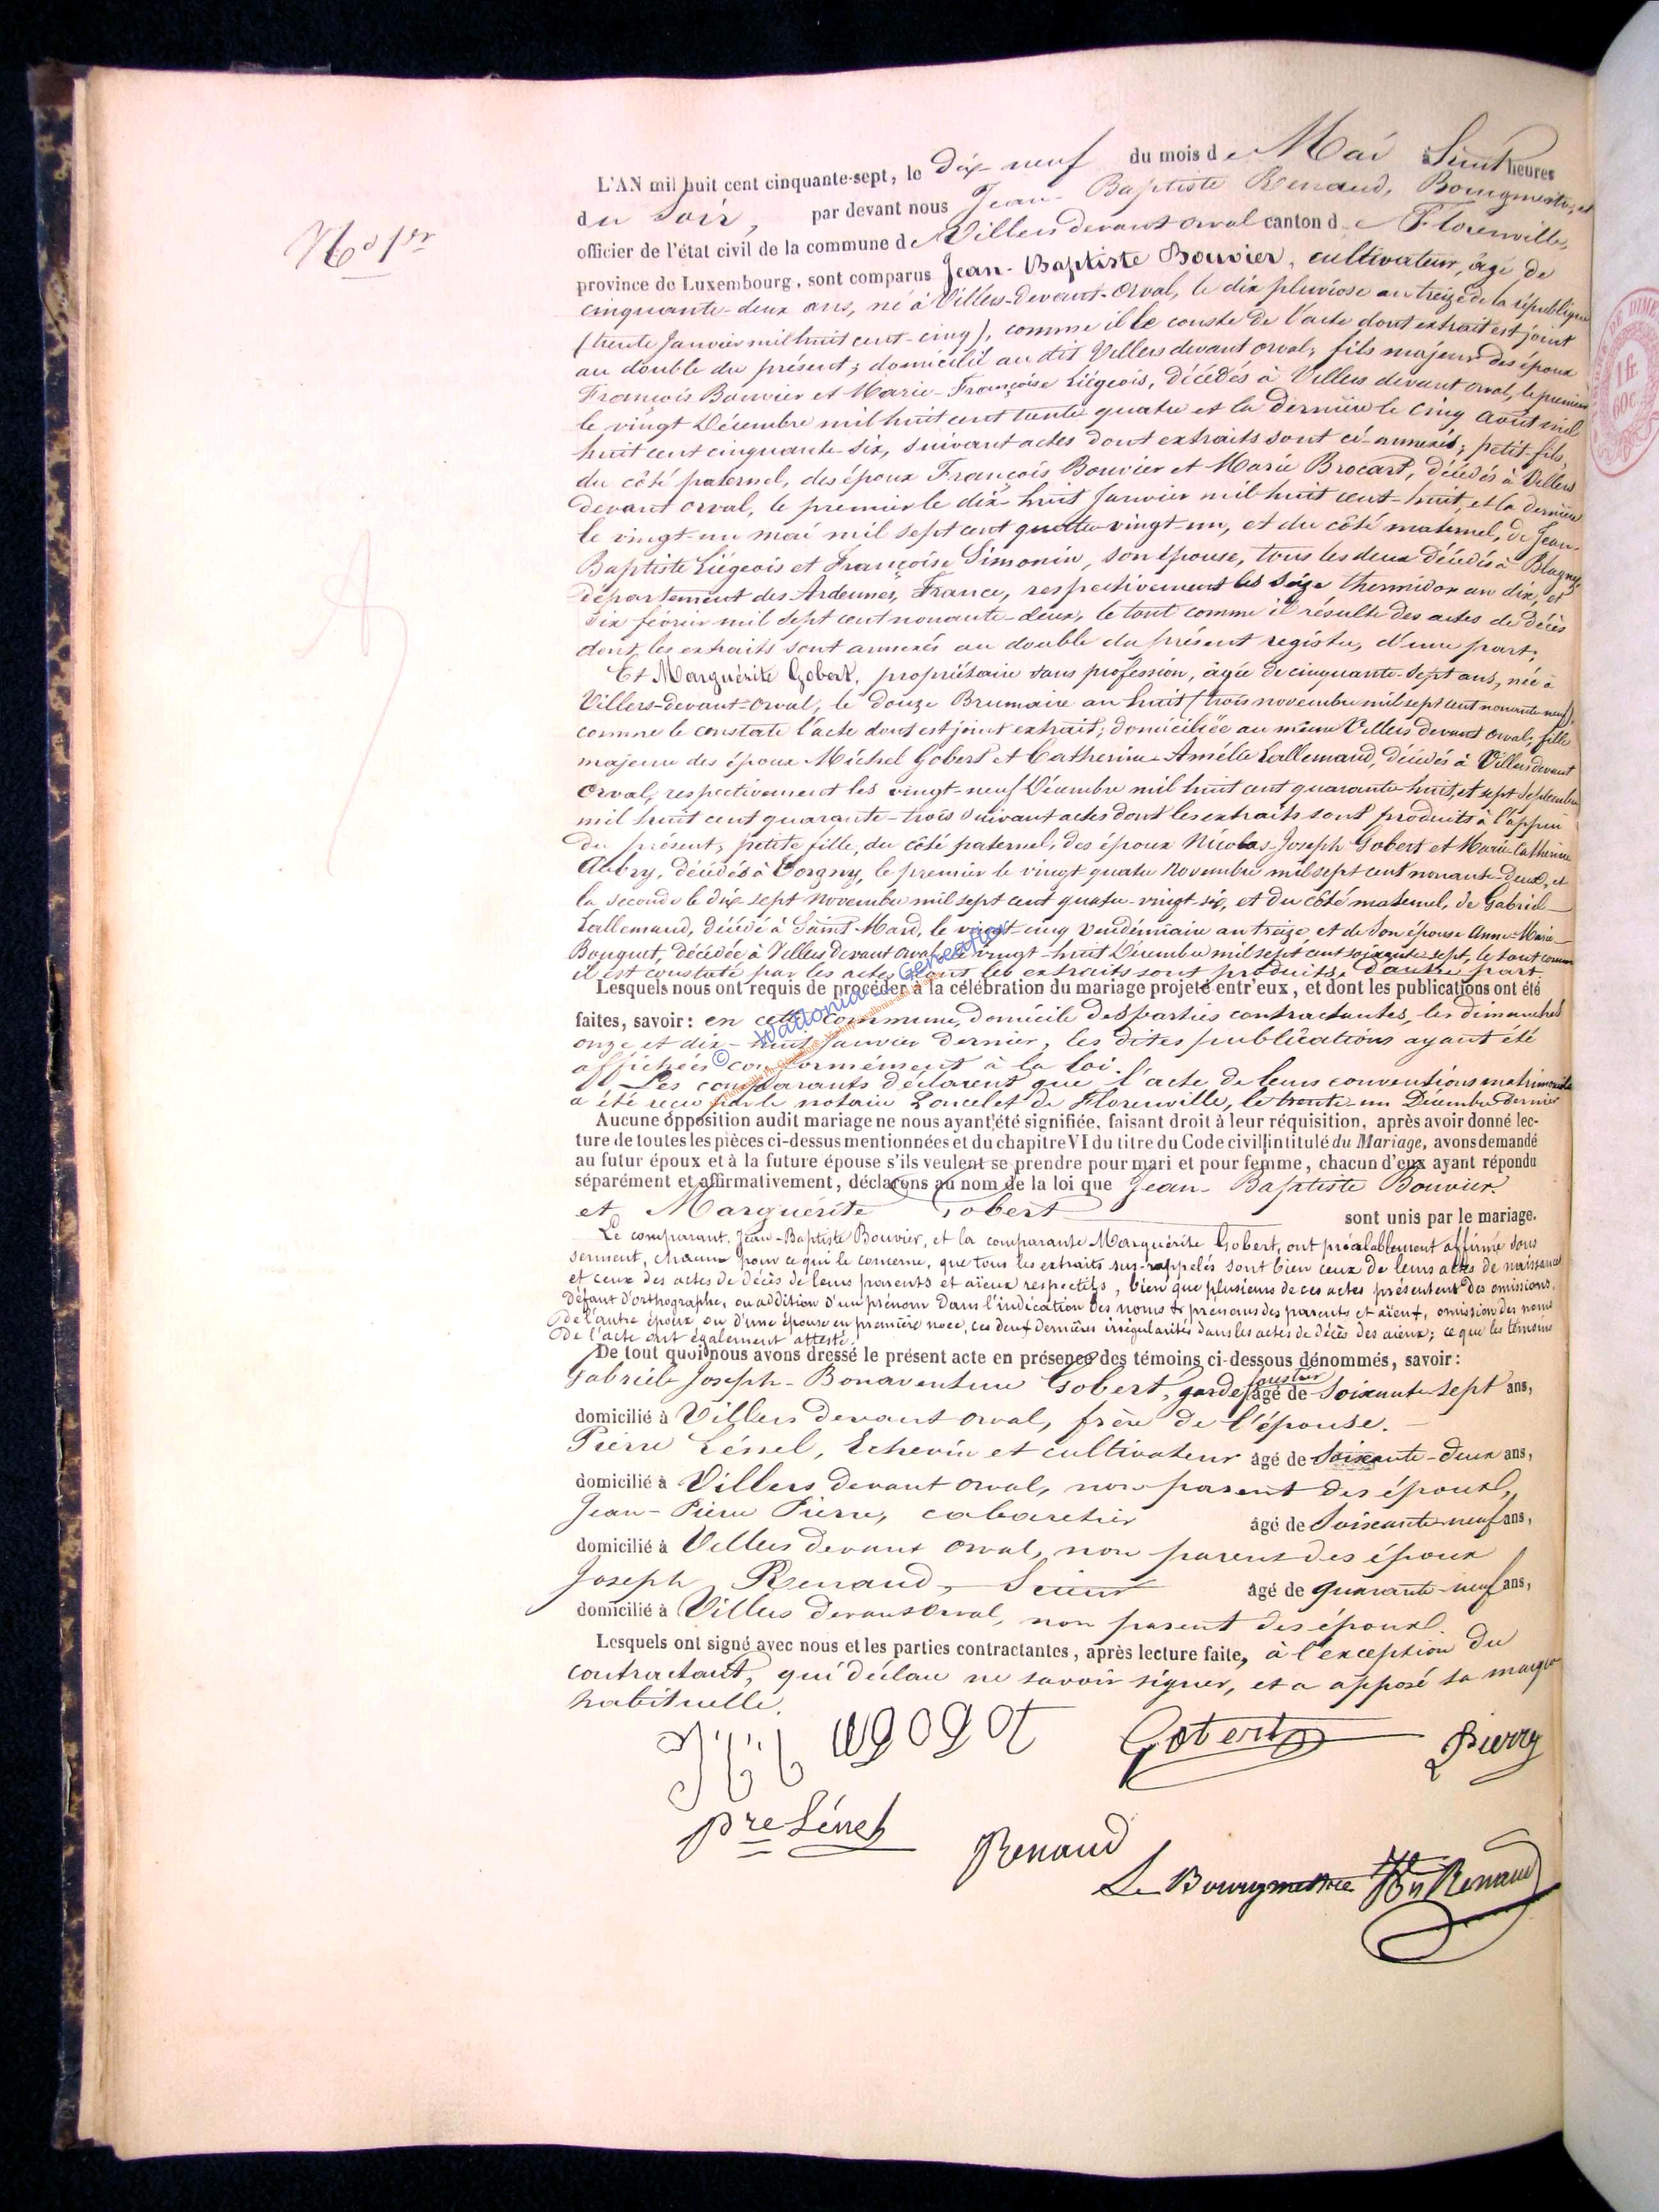 No 1er
L'AN mil huit cent cinquante-sept, le dix-neuf du mois de Mai heures
du soir, par devant nous Jean-Baptiste Renaud, Bourgmestre, et
officier de l'état civil de la commune de Villers devant orval canton de Florenville,
province de Luxembourg, sont comparus Jean-Baptiste Bouvier, cultivateur, âgé de
cinquante-deux ans, né à Villers-devant-Orval, le dix pluviose an treize de la république
(trente Janvier mil huit cent-cinq), comme il le conste de l'acte dont extrait est joint
au double du présent; domicilié au dit Villers devant orval; fils majeur des époux
François Bouvier et Marie-Françoise Liégeois, décédés à Villers devant orval, le premier
le vingt Décembre mil huit cent trente quatre et la dernière le cinq août mil
huit cent cinquante-six, suivant actes dont extraits sont ci-annexés; petit-fils,
du côté paternel, des époux François Bouvier et Marie Brocart, décédés à Villers
devant orval, le premier le dix-huit Janvier mil huit cent-huit, et la dernière
le vingt-un mai mil sept cent quatre-vingt-un, et du côté maternel, de Jean-
Baptiste Liégeois et Françoise Simonin, son épouse, tous les deux décédés à Blagny,
département des Ardennes, France, respectivement les seize thermidor an dix, et
dix février mil sept cent nonante-deux, le tout comme il résulte des actes de décès
dont les extraits sont annexés au double du présent registre, d'une part;
Et Marguérite Gobert, propriétaire sans profession, âgée de cinquante-sept ans, née à
Villers-devant-Orval, le douze Brumaire an huit (trois novembre mil sept cent nonante-neuf),
comme le constate l'acte dont est joint extrait; domiciliée au même Villers devant orval; fille
majeure des époux Michel Gobert et Catherine-Amélie Lallemand, décédés à Villers devant
Orval, respectivement les vingt-neuf Décembre mil huit cent quarante huit, et sept Septembre
mil huit cent quarante-trois suivant actes dont les extraits sont produits à l'appui
du présent; petite fille, du côté paternel, des époux Nicolas-Joseph Gobert et Marie-Catherine
Aubry, décédés à Torgny, le premier le vingt quatre Novembre mil sept cent nonante-deux, et
la seconde le dix-sept Novembre mil sept cent quatre-vingt-six, et du côté maternel, de Gabriel
Lallemand, décédé à Saint-Mard, le vingt-cinq Vendémiaire an treize et de son épouse Anne-Marie
Bouquet, décédée à Villers devant orval le vingt-huit Décembre mil sept cent soixante sept, le tout comme
il est constaté par les actes dont les extraits sont produits, d'autre part.
Lesquels nous ont requis de procéder à la célébration du mariage projeté entr'eux, et dont les publications ont été
faites, savoir: en cette commune, domicile des parties contractantes, les dimanches
onze et dix-huit Janvier dernier, les dites publications ayant été
affichées conformément à la loi.
Les comparants déclarent que l'acte de leurs conventions matrimoniales
a été reçu par le notaire Poncelet de Florenville, le trente-un Décembre dernier
Aucune opposition audit mariage ne nous ayant été signifiée, faisant droit à leur réquisition, après avoir donné lec-
ture de toutes les pièces ci-dessus mentionnées et du chapitre VI du titre du Code civil intitulé du Mariage, avons demandé
au futur époux et à la future épouse s'ils veulent se prendre pour mari et pour femme, chacun d'eux ayant répondu
séparément et affirmativement, déclarons au nom de la loi que Jean-Baptiste Bouvier
et Marguérite Gobert sont unis par le mariage.
Le comparant, Jean-Baptiste Bouvier, et la comparante Marguérite Gobert, ont préalablement affirmé sous
serment, chacun pour ce qui le concerne, que tous les extraits sus-rappelés sont bien ceux de leurs actes de naissance
et ceux des actes de décès de leurs parents et aïeux respectifs, bien que plusieurs de ces actes présentent des omissions,
défaut d'orthographe, ou addition d'un prénom dans l'indication des noms & prénoms des parents et aïeux, omission des noms
de l'autre époux ou d'une épouse en première noce, ces deux dernières irrégularités dans les actes de décès des aïeux; ce que les témoins
de l'acte ont également attesté.
De tout quoi nous avons dressé le présent acte en présence des témoins ci-dessous dénommés, savoir:
Gabriël-Joseph-Bonaventure Gobert, garde forestier âgé de soixante-sept ans,
domicilié à Villers devant orval, frère de l'épouse.
Pierre Lénel, Echevin et cultivateur âgé de soixante-deux ans,
domicilié à Villers devant orval, non parent des époux,
Jean-Pierre Pierre, cabaretier âgé de soixante-neuf ans,
domicilié à Villers devant orval, non parent des époux
Joseph Renaud, Scieur âgé de quarante-neuf ans,
domicilié à Villers devant orval, non parent des époux.
Lesquels ont signé avec nous et les parties contractantes, après lecture faite, à l'exception du
contractant, qui déclare ne savoir signer, et a apposé sa marque
habituelle.
Gobert Pierre
Pre Lénel
Renaud
Le Bourgmestre JBte Renaud
© Wallonia - Geneaflor
1 fr
60c